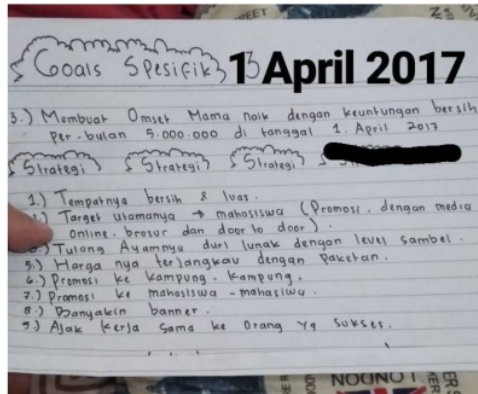 Goals Spesifik
1 April 2017
3.) Membuat Omset Mama naik dengan keuntungan bersih
per-bulan 5.000.000 di tanggal 1. April 2017
Strategi Strategi Strategi
1.) Tempatnya bersih & luas.
Target utamanya → mahasiswa (Promosi. dengan media
online. brosur dan door to door).
Tulang Ayamnya duri lunak dengan level sambel.
5.) Harga nya terjangkau dengan paketan.
6.) Promosi ke kampung-kampung.
7.) Promosi ke mahasiswa-mahasiwa.
8.) Banyakin banner.
9.) Ajak kerja sama ke Orang Yg sukses.
NOUNO